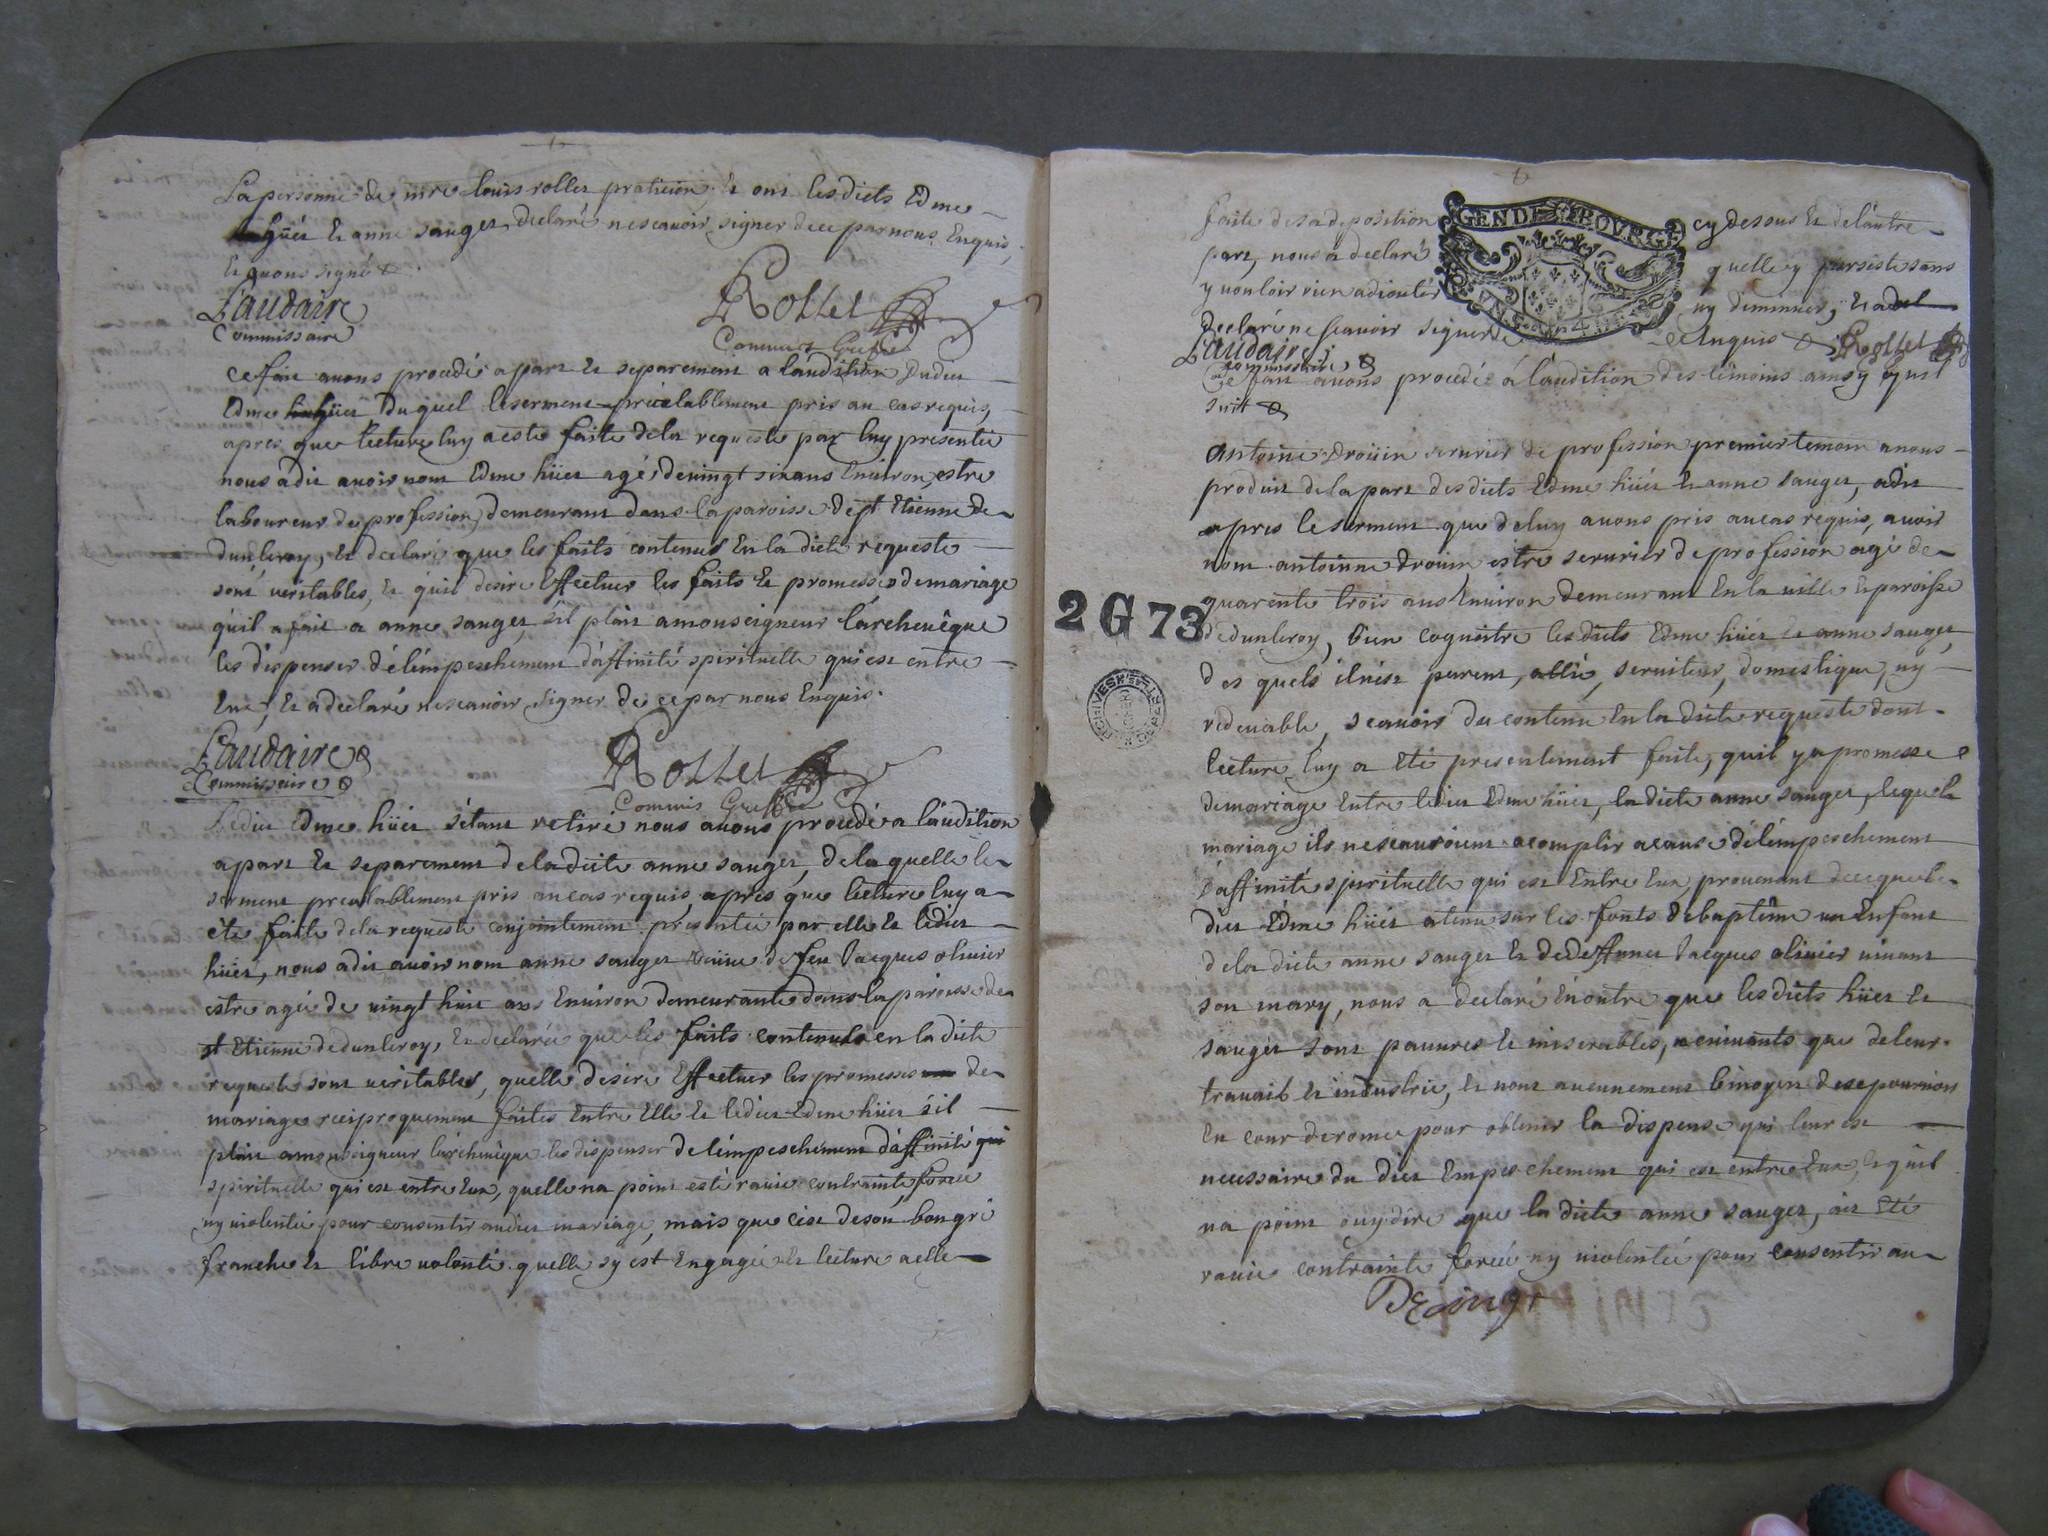 La personne de mre louis rollet praticien, et ont lesdicts Edme
hüet et anne sauget declaré ne scauoir signer de ce par nous Enquis,
et auons signé
Laudaire
Commissaire
Rollet
Commis Greffier
Ce fait auons procedé apart et separement a l'audition dudict
Edme hüet duquel le serment préalablement pris au cas requis,
apres que lecture luy a esté faite de la requeste par luy presentée
nous a dit auoir nom Edme hüet agé de vingt six ans Enuiron estre
laboureur de profession, demeurant dans la paroisse de st Etienne de
dunleroy, et declaré que les faits contenus En la dicte requeste
sont veritables, et qu'il desire Effectuer les faits et promesses de mariage
qu'il a fait a anne sauget, s'il plait a monseigneur l'archeuêque
les dispenser de l'empeschement d'affinité spirituelle qui est entre
Eux, et a declaré ne scauoir signer de ce par nous Enquis.
Laudaire
Commissaire
Rollet
Commis Greffier
Ledict Edme hüet s'étant retiré nous auons procedé a l'audition
apart et separement de la dicte anne sauget, de laquelle le
serment prealablement pris au cas requis, apres que lecture luy a
été faite de la requeste conjointement presentée par elle et ledict
hüet, nous a dit auoir nom anne sauget veüue de feu Jacques oliuier
estre agée de vingt huit ans Enuiron demeurante dans la paroisse de
st Etienne de dunleroy, et declarée que les faits contenus en la dicte
requeste sont veritables, quelle desire Effectuer les promesses de
mariage reciproquement faites Entre Elle et ledict Edme hüet s'il
plait a monseigneur l'archeuêque les dispenser de l'empeschement d'affinité qui
spirituelle qui est entre Eux, quelle na point esté rauie contrainte forcée
ny violentée pour consentir audict mariage, mais que c'est de son bon gré
franche et libre volonté quelle sy est Engagée et lecture a elle
faite de sa deposition cy dessus et de l'autre
part, nous a declaré quelle y persiste sans
y vouloir rien adiouter ny diminuer, et a
declaré ne scauoir signer de ce Enquis Rollet
Laudaire
Commissaire
GEN DE BOVRGE
Ce fait auons procedé á l'audition des témoins ainsy quil
suit
Antoine Droüin serurier de profession premier temoin a nous
produit de la part desdicts Edme hüet et anne sauget, a dit
apres le serment que de luy auons pris au cas requis, auoir
nom antoinne drouin estre serurier de profession agé de
quarente trois ans Enuiron demeurant En la ville et paroisse
de dunleroy, bien cognoitre lesdicts Edme hüet et anne sauget,
des quels il n'est parent, allié, seruiteur, domestique, ny
redeuable, scauoir du contenu En la dicte requeste dont
lecture luy a été presentement faite, quil y a promesse
de mariage Entre ledict Edme hüet, la dicte anne sauget, lequel
mariage ils ne scauroient acomplir a cause de l'empeschement
d'affinité spirituelle qui est Entre Eux, prouenant de ce que le
dict Edme hüet a tenu sur les fonts de baptême un Enfant
de la dicte anne sauget et de deffunct Jacques oliuier viuant
son mary, nous a declaré En outre que lesdicts hüet et
sauget sont pauures et miserables, ne viuants que de leur
trauail et industrie, et n'ont aucunement le moyen de se pouruoir
En cour de rome pour obtenir la dispense qui leur est
necessaire du dict Empeschement qui est entre Eux, et quil
na point ouy dire que la dicte anne sauget, ait été
rauie contrainte forcée ny violentée pour consentir au
2 G 73